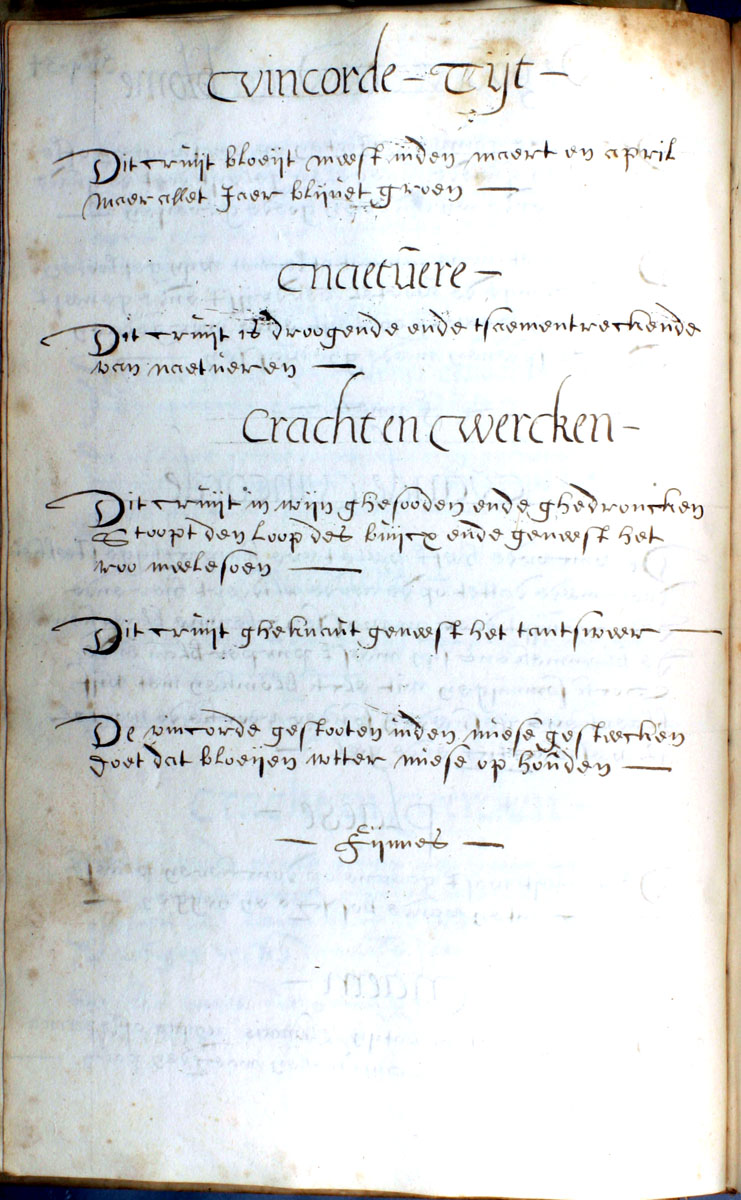 Tvincorde – Tijt –
Dit cruijt bloeijt meest inden maert en april
maer allet Jaer blijvet groen —
Tnaetuere –
Dit cruijt is droogende ende tsaementreckende
van naetueren —
Cracht en Twercken –
Dit cruijt in wijn ghesooden ende ghedroncken
Stoopt den loop des buijcx ende geneest het
roo meelesoen —
Dit cruijt gheknaut geneest het tantsweer —
De vincorde gestooten inden niese gesteecken
doet dat bloeijen wtter niese op houden —
— Fijnnes —